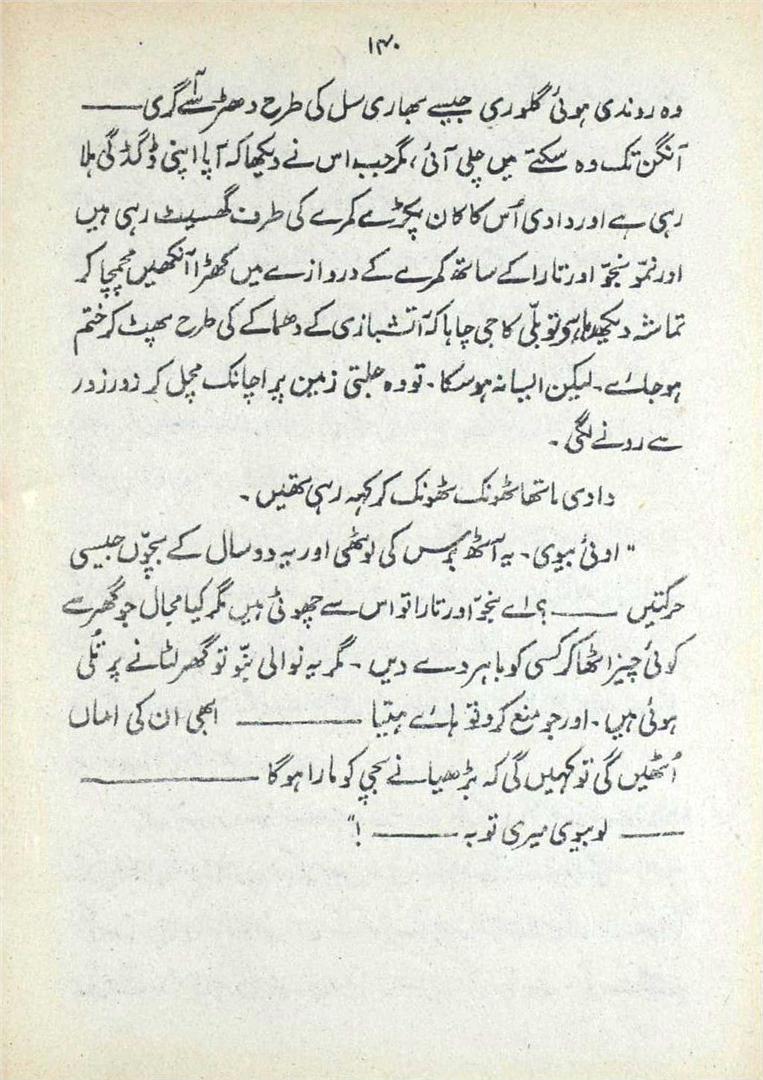 ۱۳۰
وہ روندی ہوئی گلوری جیسے بھاری سل کی طرح دھڑ سے آ گری ——
آنگن تک وہ سکتے میں چلی آئی، مگر جب اس نے دیکھا کہ آپا اپنی ڈگڈگی ہلا
رہی ہے اور دادی اُس کا کان پکڑے کمرے کی طرف گھسیٹ رہی ہیں
اور نمّو نجّو اور تارا کے ساتھ کمرے کے دروازے میں کھڑا آنکھیں مچمچا کر
تماشہ دیکھ رہا ہے تو بلّی کا جی چاہا کہ آتشبازی کے دھماکے کی طرح پھٹ کر ختم
ہو جائے۔ لیکن ایسا نہ ہو سکا۔ تو وہ جلتی زمین پر اچانک مچل کر زور زور
سے رونے لگی۔
دادی ماتھا ٹھونک ٹھونک کر کہہ رہی تھیں۔
"اوئی بیوی۔ یہ آٹھ برس کی لوٹھی اور یہ دو سال کے بچّوں جیسی
حرکتیں ——؟ اے نجّو اور تارا تو اس سے چھوٹی ہیں مگر کیا مجال جو گھر سے
کوئی چیز اٹھا کر کسی کو باہر دے دیں۔ مگر یہ نوالی بنّو تو گھر لٹانے پر تُلی
ہوئی ہیں۔ اور جو منع کرو تو ہائے ہتیا —— ابھی ان کی اماں
اُٹھیں گی تو کہیں گی کہ بڑھیا نے بچی کو مارا ہو گا ——
—— لو بیوی میری توبہ ——!"